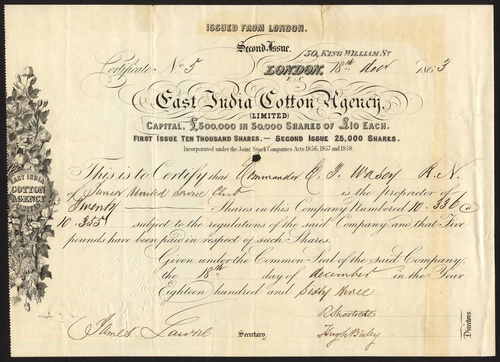 ISSUED FROM LONDON.
Second Issue.
150, KING WILLIAM ST
Certificate No 5
LONDON, 18th Decr 1863
E.C.
East India Cotton Agency,
(LIMITED)
CAPITAL, £500,000 IN 50,000 SHARES OF £10 EACH.
FIRST ISSUE TEN THOUSAND SHARES. — SECOND ISSUE 25,000 SHARES.
Incorporated under the Joint Stock Companies Acts 1856, 1857 and 1858.
This is to Certify that Commander C. F. Wasey R.N.
of Junior United Service Club is the proprietor of
Twenty Shares in this Company Numbered 10.336 @
10.355 subject to the regulations of the said Company, and that Five
pounds have been paid in respect of such Shares.
Given under the Common Seal of the said Company,
the 18th day of December in the Year
Eighteen hundred and Sixty three
EAST INDIA
COTTON
AGENCY
LIMITED
James Secretary.
Directors.